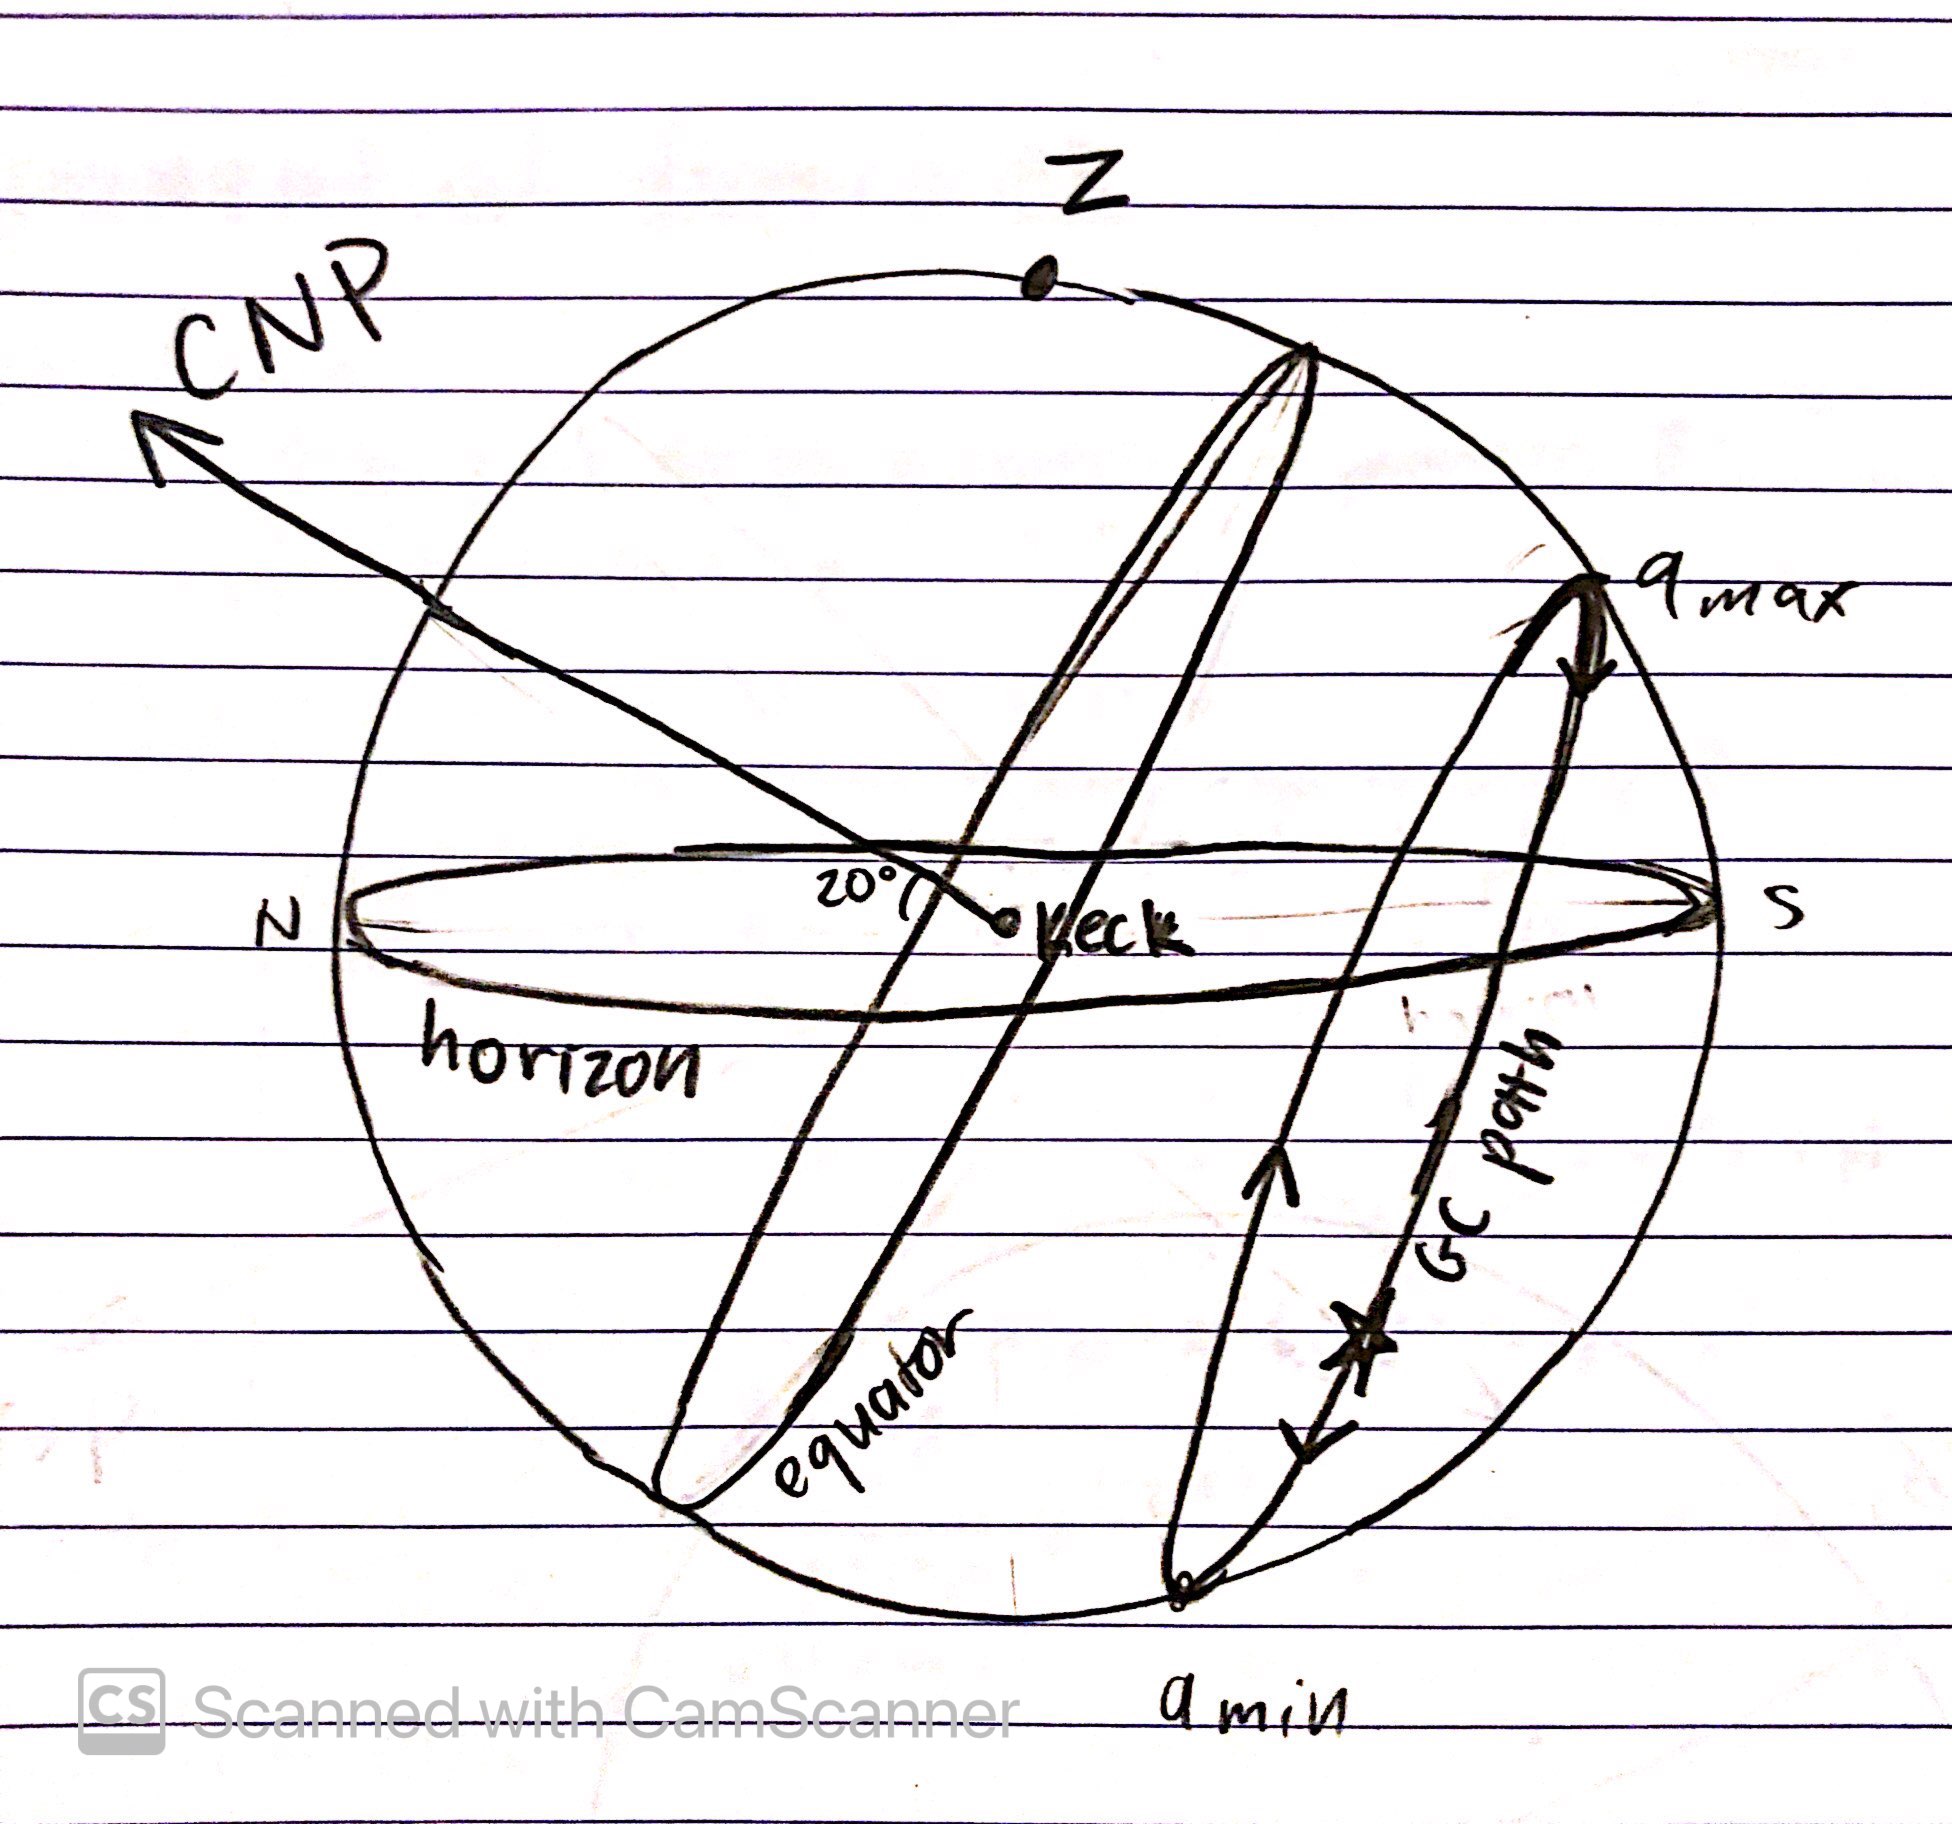 Z
CNP
a max
20°
Keck
N
S
horizon
GC path
equator
a min
CS Scanned with CamScanner